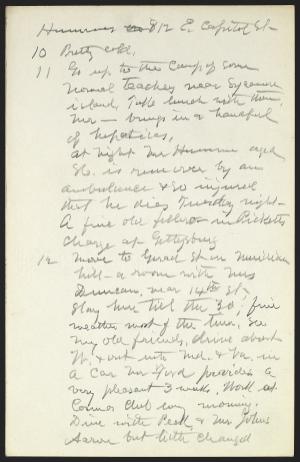 Hummers 812 E. Capitol St.
10 Pretty cold.
11 Go up to the Camp of some
normal teachers near Sycamore
island, take lunch with them,
Mr — brings in a handful
of hepaticas,
At night Mr Hummer aged
80. is run over by an
ambulance & so injured
that he dies Tuesday night—
A fine old fellow in Picketts
Charge at Gettysburg
12 Move to Girard St on Meridian
hill – a room with Mrs
Duncan, near 14th St.
Stay here till the 30, fine
weather most of the time, See
my old friends, drive about
W. & out into Md. & Va. in
a car Mr Ford provides a
very pleasant 3 weeks, Work at
Cosmos Club every morning.
Dine with Peck, & Mr Johns
Aaron but little changed